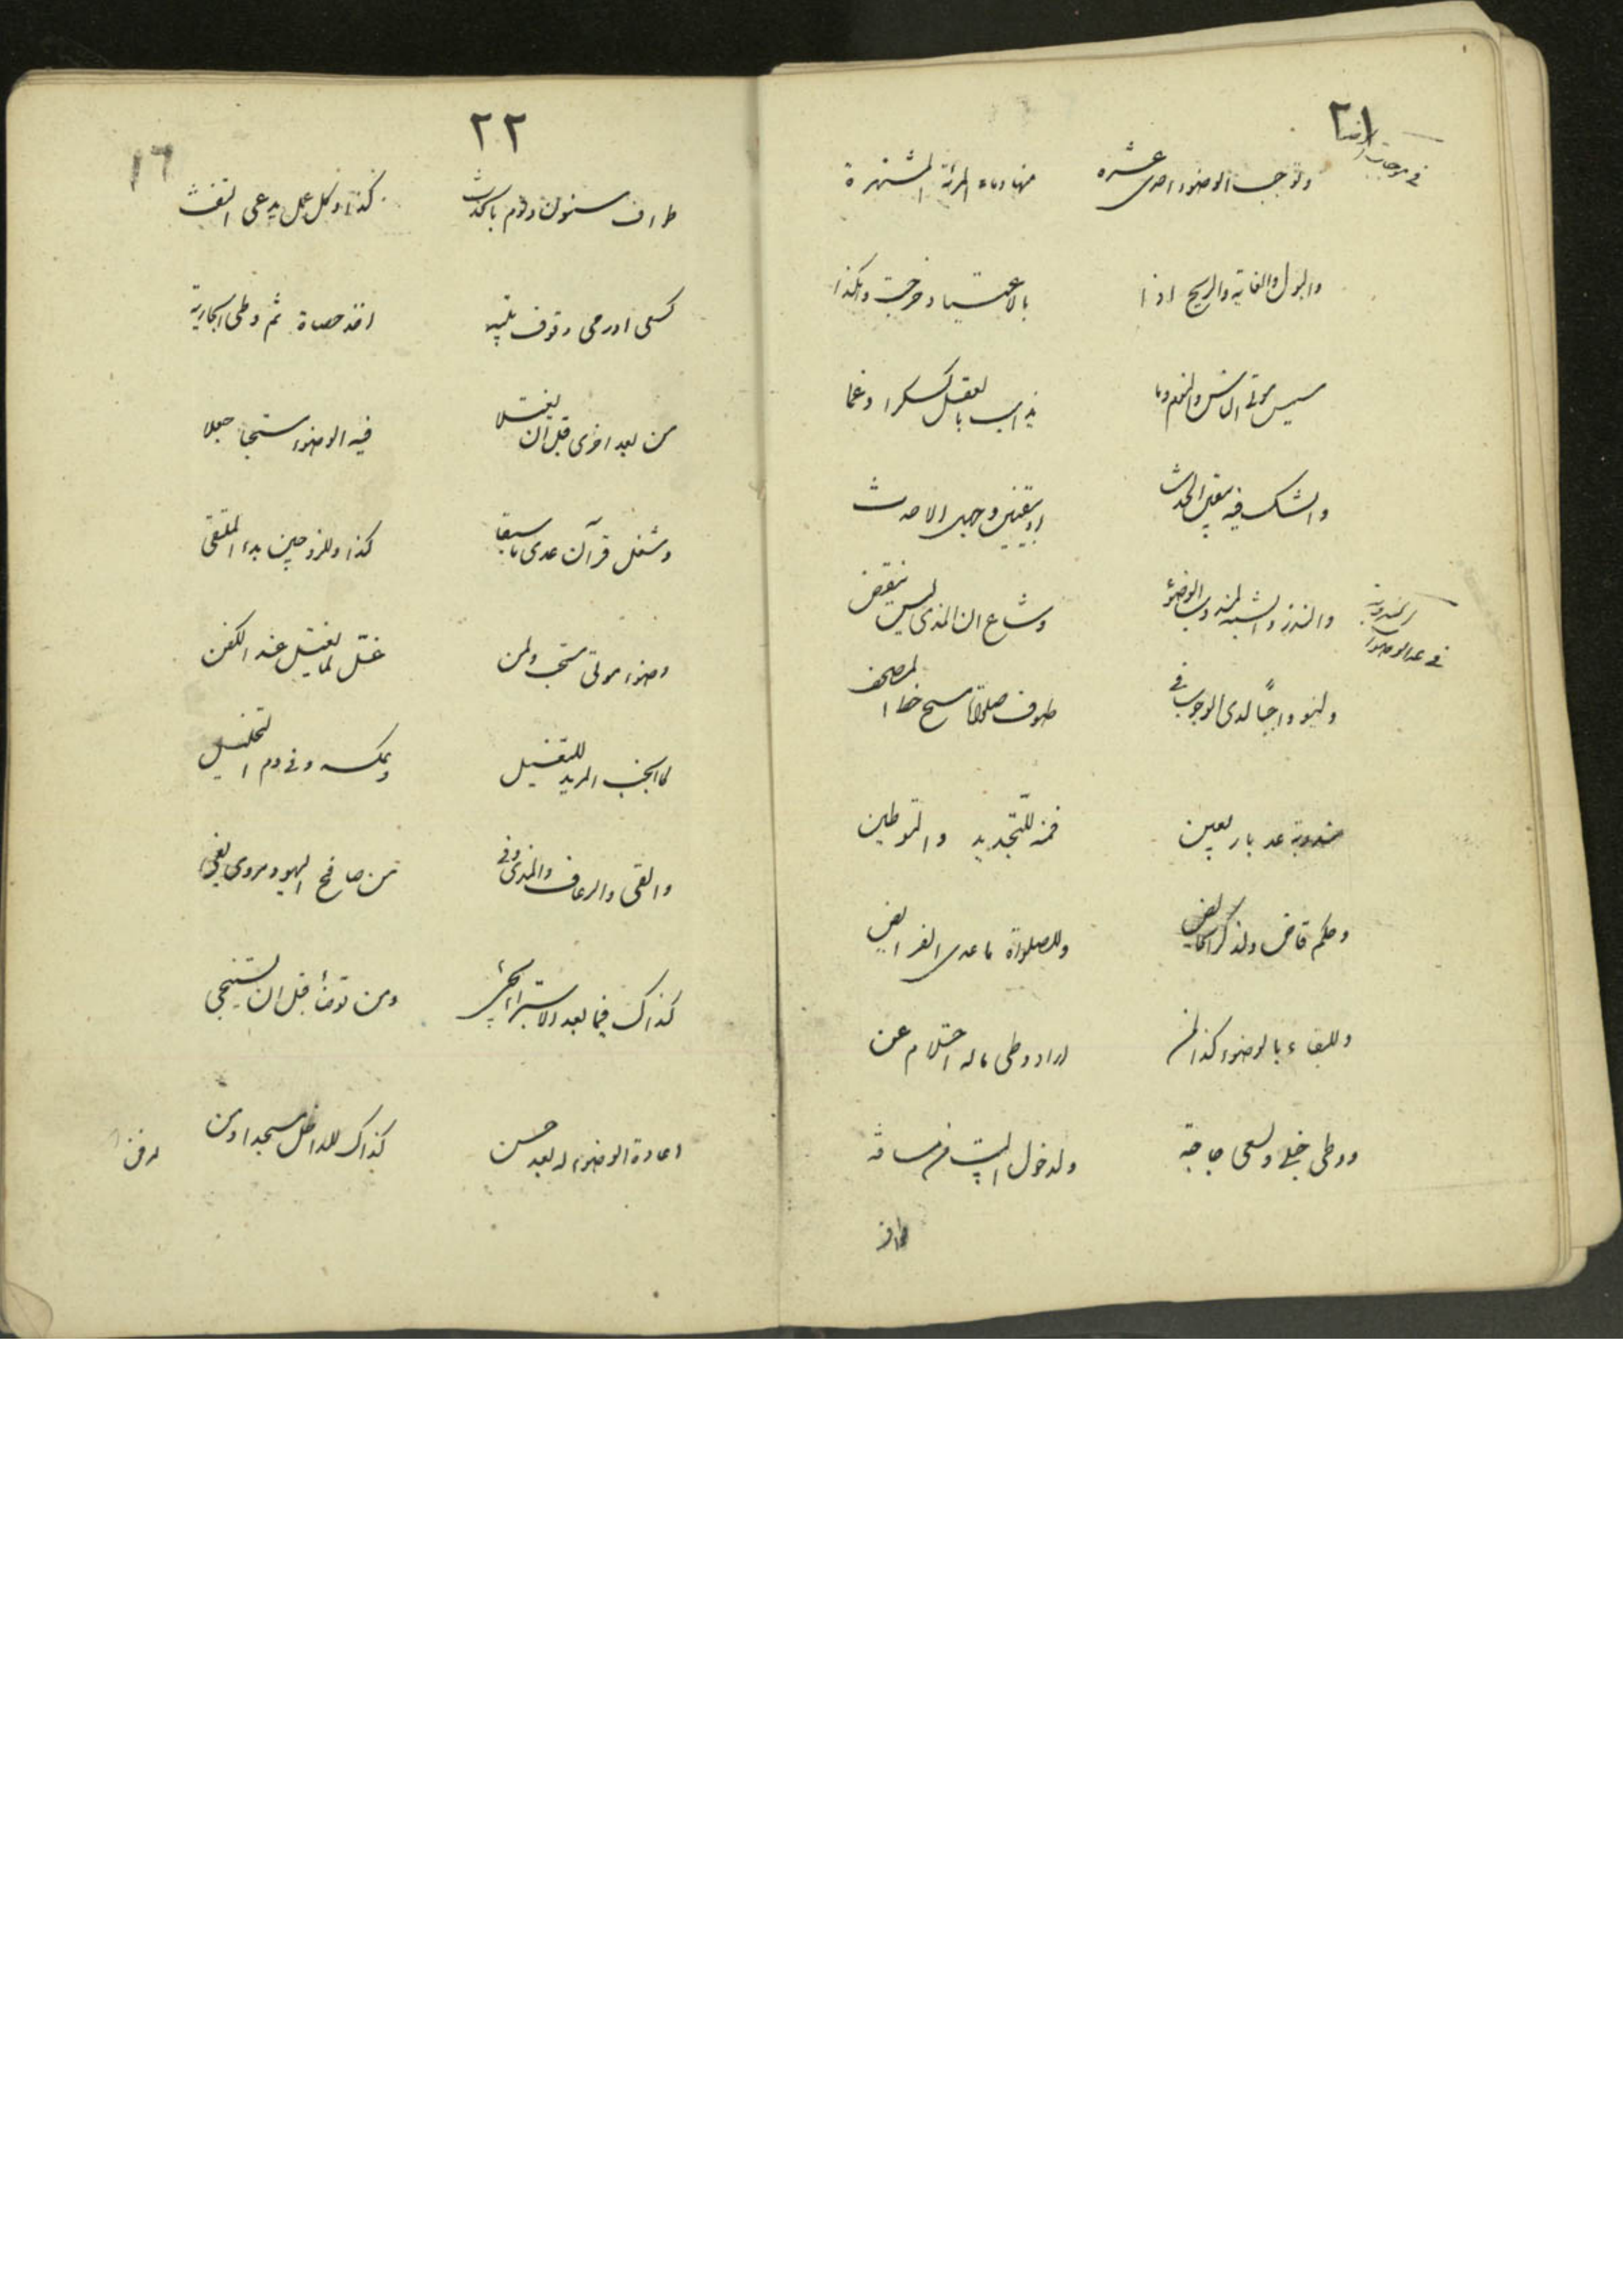 ٢١
في موجبات
وتوجب الوضوء احدى عشره منها دماء المرأة المشتهرة
والبول والغايه والريح اذا بالاعتياد خرجت وهكذا
مسيس موتى الناس والنوم وما يذهب بالعقل كسكرا وغما
والشك فيه بيقين الحدث او بيقين وجهل الاحدث
في عد الوضوءات المندوبة
والنذر والشبه لمندوب الوضوء وشاع ان المذي ليس ينقض
ولينو واجباً لدى الوجوب في طوف صلوة مسح خط المصحف
مندوبة عد باربعين فمنه للتجديد والتوطين
وحكم قاض ولذكر الحايض وللصلواة ما عدى الفرايض
وللبقاء بالوضوء كذا لمن اراد وطى ماله احتلام عن
ووطى حبلى ولسعى حاجة ولدخول البيت من مسافة
طواف
٢٢
١٦
طواف مسنون ونوم بالحدث كذا وكل عمل يدعى التفث
كسعى او رمى وقوف تلبيه اخذ حصاة ثم وطى الجارية
من بعد اخرى قبل ان يغتسلا فيه الوضوء مستحبا جعلا
وشغل قرآن عدى ما سبقا كذا وللزوجين بدء الملتقى
وضوء موتى مستحب ولمن غسّل لما يغتسل عند الكفن
كالجنب المريد للتغسيل وعكسه وفي دم التخليل
والقى والرعاف والمذى وفي من صافح اليهود مروى يفي
كذاك فيما بعد الاستبراء يجى ومن توضأ قبل ان يستنجى
اعادة الوضوء له بعد حسن كذاك للداخل مسجدا ومن